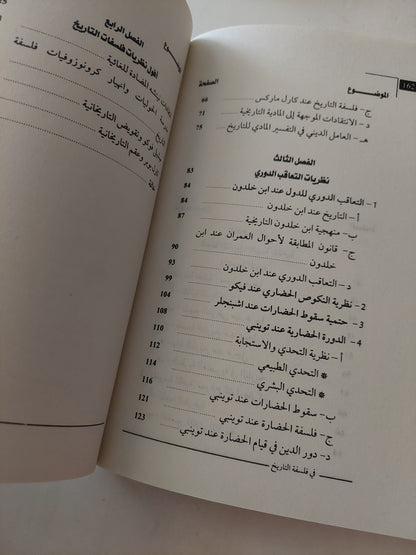 162
الموضـــوع الصفحة
ج- فلسفة التاريخ عند كارل ماركس 66
د- الانتقادات الموجهة إلى المادية التاريخية 71
هـ- العامل الديني في التفسير المادي للتاريخ 75
الفصل الثالث
نظريات التعاقب الدوري 83
1- التعاقب الدوري للدول عند ابن خلدون 84
أ- التاريخ عند ابن خلدون
ب- منهجية ابن خلدون التاريخية 87
ج- قانون المطابقة لأحوال العمران عند ابن
خلدون 90
د- التعاقب الدوري عند ابن خلدون 93
2- نظرية النكوص الحضاري عند فيكو 99
3- حتمية سقوط الحضارات عند اشبنجلر 104
4- الدورة الحضارية عند توينبي 108
أ- نظرية التحدي والاستجابة 110
* التحدي الطبيعي 114
* التحدي البشري 116
ب- سقوط الحضارات عند توينبي 121
ج- فلسفة الحضارة عند توينبي
د- دور الدين في قيام الحضارة عند توينبي 123
في فلسفة التاريخ
الفصل الرابع
أفول نظريات فلسفات التاريخ
المضادة للغائية
الحوليات وانهيار كرونوزوفيات فلسفة
فوكو وتقويض التاريخانية
بوبر وعقم التاريخانية